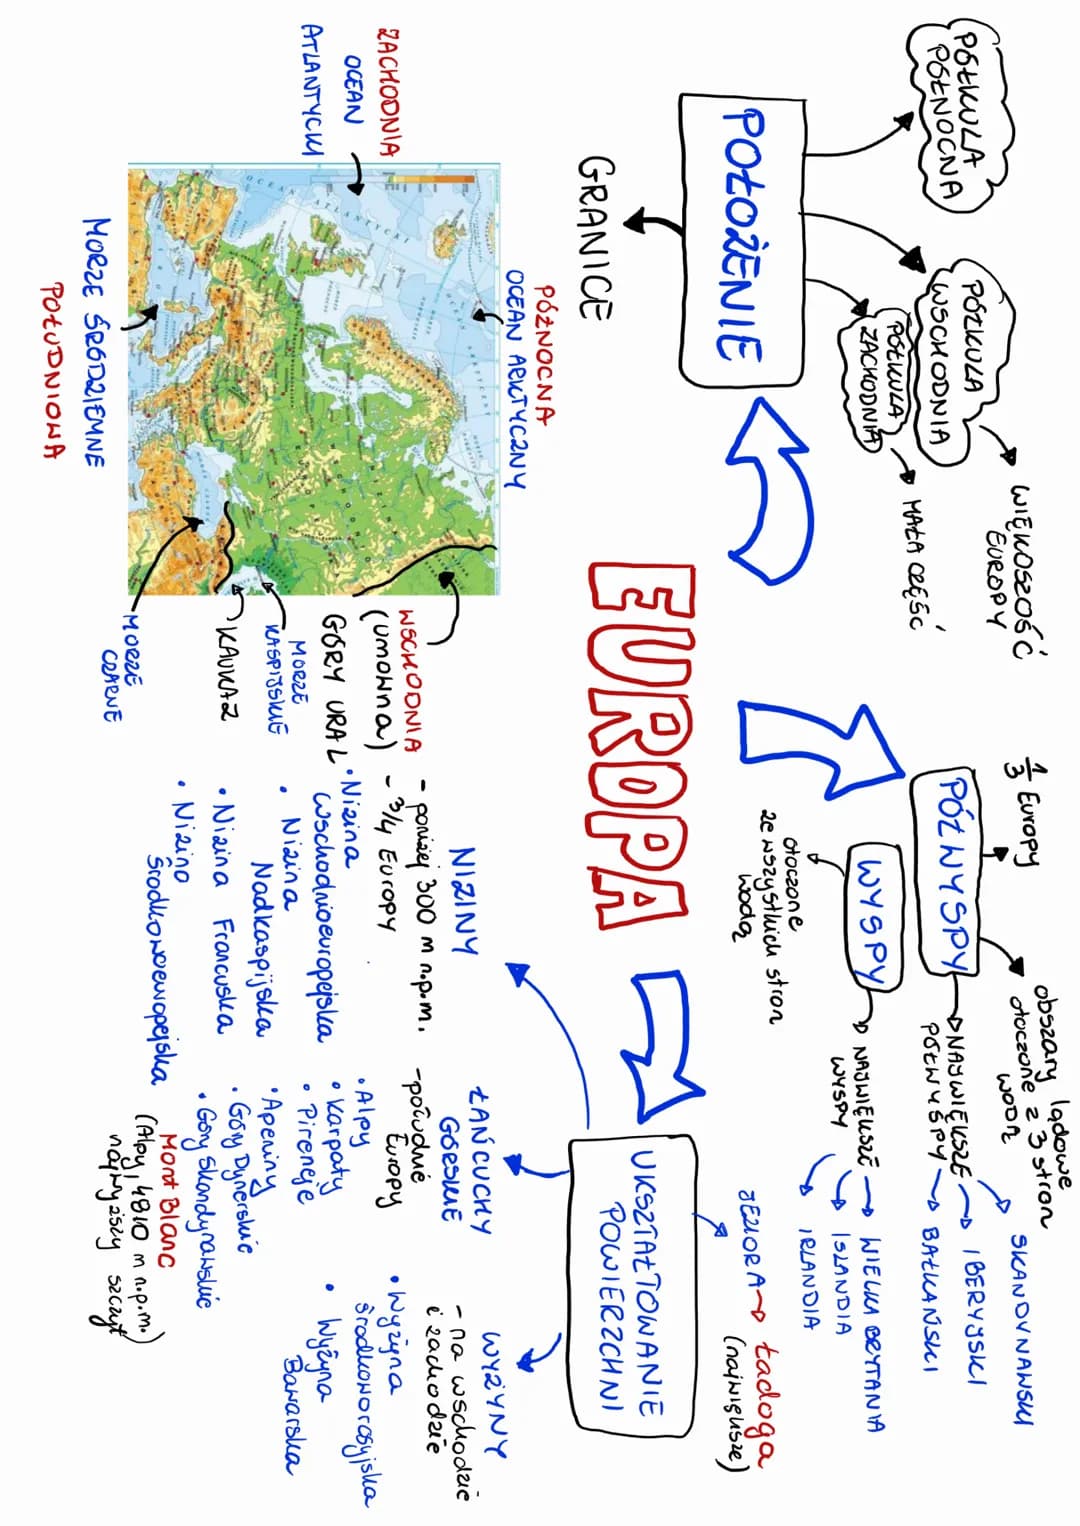 EUROPA
POŁOŻENIE
PÓŁKULA
PÓŁNOCNA
PÓŁKULA
WSCHODNIA
WIĘKSZOŚĆ
EUROPY
PÓŁKULA
ZACHODNIA
MAŁA CZĘŚĆ
GRANICE
PÓŁNOCNA
OCEAN ARKTYCZNY
ZACHODNIA
OCEAN
ATLANTYCKI
MORZE ŚRÓDZIEMNE
POŁUDNIOWA
WSCHODNIA
(umowna)
GÓRY URAL
MORZE
KASPIJSKIE
KAUKAZ
MORZE
CZARNE
PÓŁWYSPY
1/3 Europy
obszary lądowe
otoczone z 3 stron
wodą
NAJWIĘKSZE
PÓŁWYSPY
SKANDYNAWSKI
IBERYJSKI
BAŁKAŃSKI
WYSPY
otoczone
ze wszystkich stron
wodą
NAJWIĘKSZE
WYSPY
WIELKA BRYTANIA
ISLANDIA
IRLANDIA
UKSZTAŁTOWANIE
POWIERZCHNI
JEZIORA → Ładoga
(największe)
NIZINY
- poniżej 300 m n.p.m.
- 3/4 EUROPY
• Nizina
Wschodnioeuropejska
• Nizina
Nadkaspijska
• Nizina Francuska
• Nizina
Środkowoeuropejska
ŁAŃCUCHY
GÓRSKIE
- południe
Europy
• Alpy
• Karpaty
• Pireneje
• Apeniny
• Góry Dynarskie
• Góry Skandynawskie
Mont Blanc
(Alpy, 4810 m n.p.m.)
najwyższy szczyt
WYŻYNY
- na wschodzie
i zachodzie
• Wyżyna
Środkoworosyjska
• Wyżyna
Bawarska